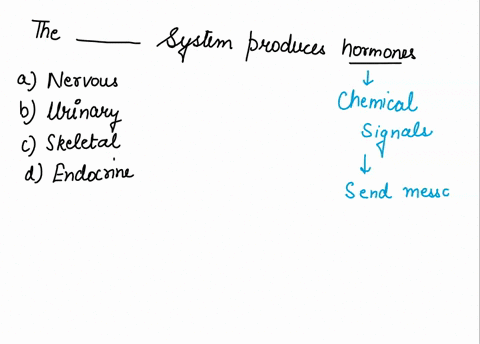 The ______ System produces hormones
a) Nervous
b) Urinary
c) Skeletal
d) Endocrine
↓
Chemical
Signals
↓
Send messa